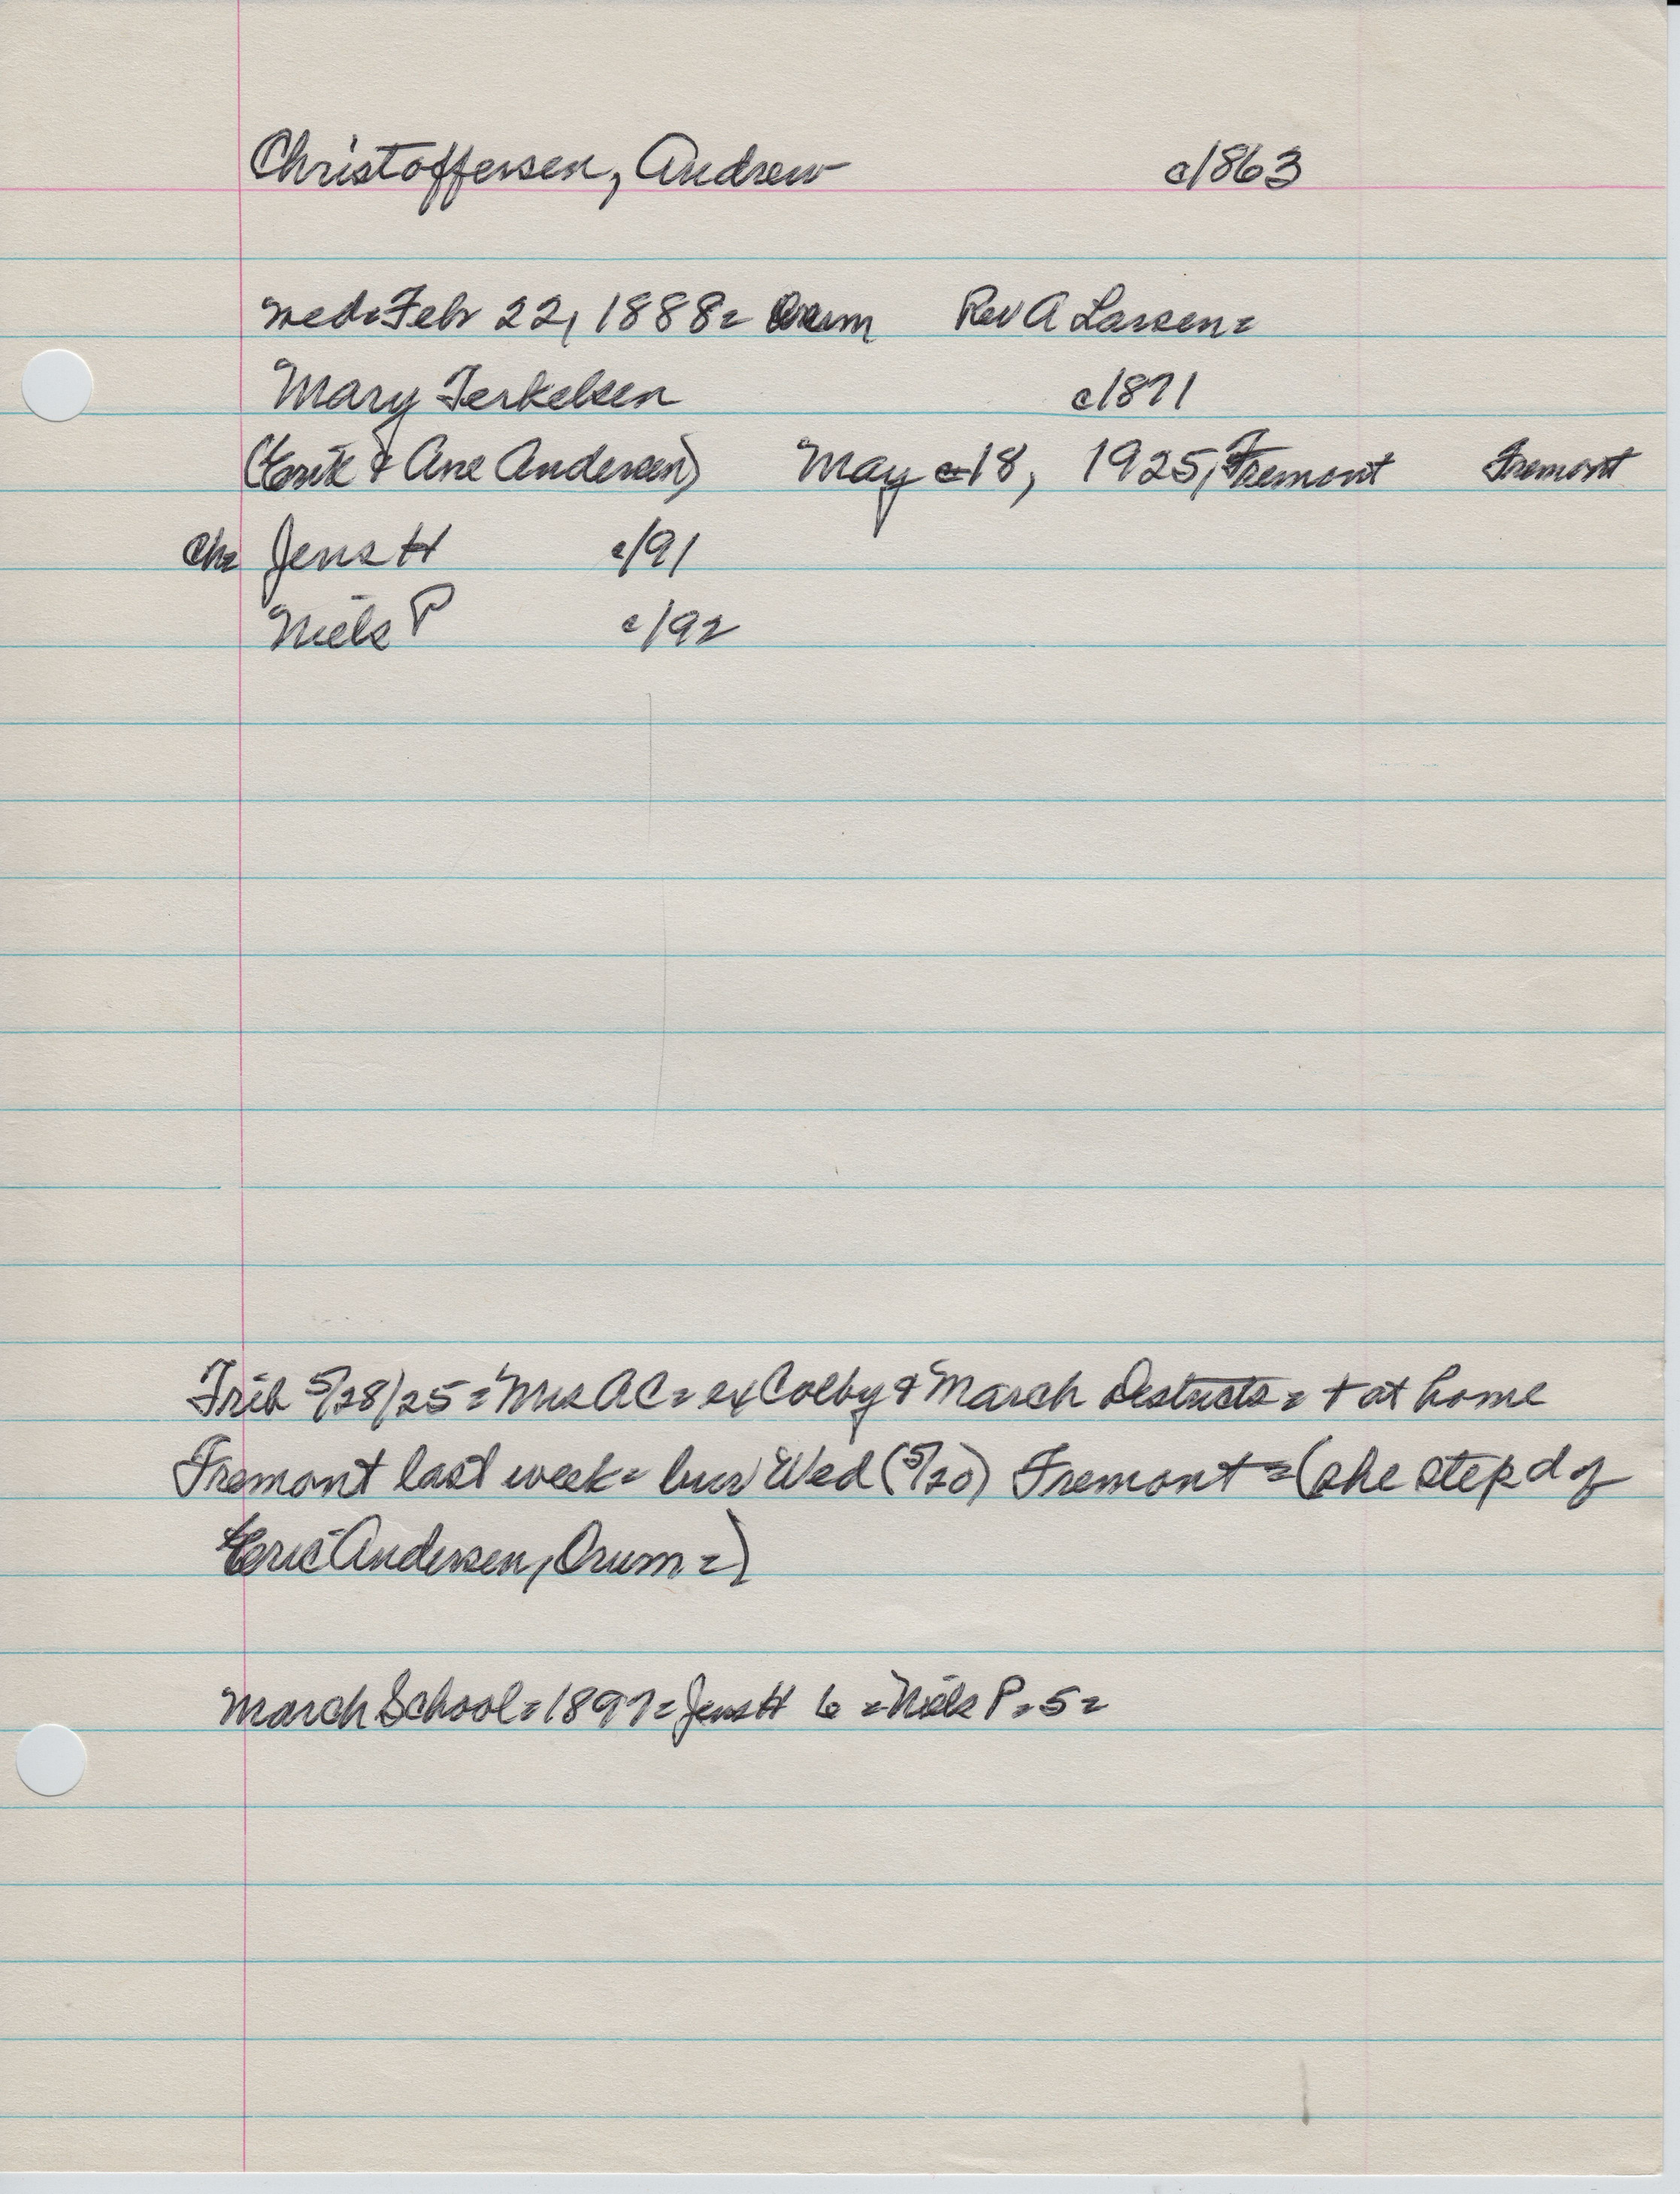 Christoffersen, Andrew c/1863
wed=Feb 22, 1888= Orum Rev A Larsen=
Mary Terkelsen c1871
(Erik & Ane Andersen) May 18, 1925, Fremont Fremont
Ch= Jens H c/91
Niels P c/92
Trib 5/28/25=Mrs AC= ex Colby & March Districts= + at home
Fremont last week= bur Wed (5/20) Fremont=(she step d of
Eric Andersen, Orum=)
March School=1897=Jens H 6 =Niels P=5=